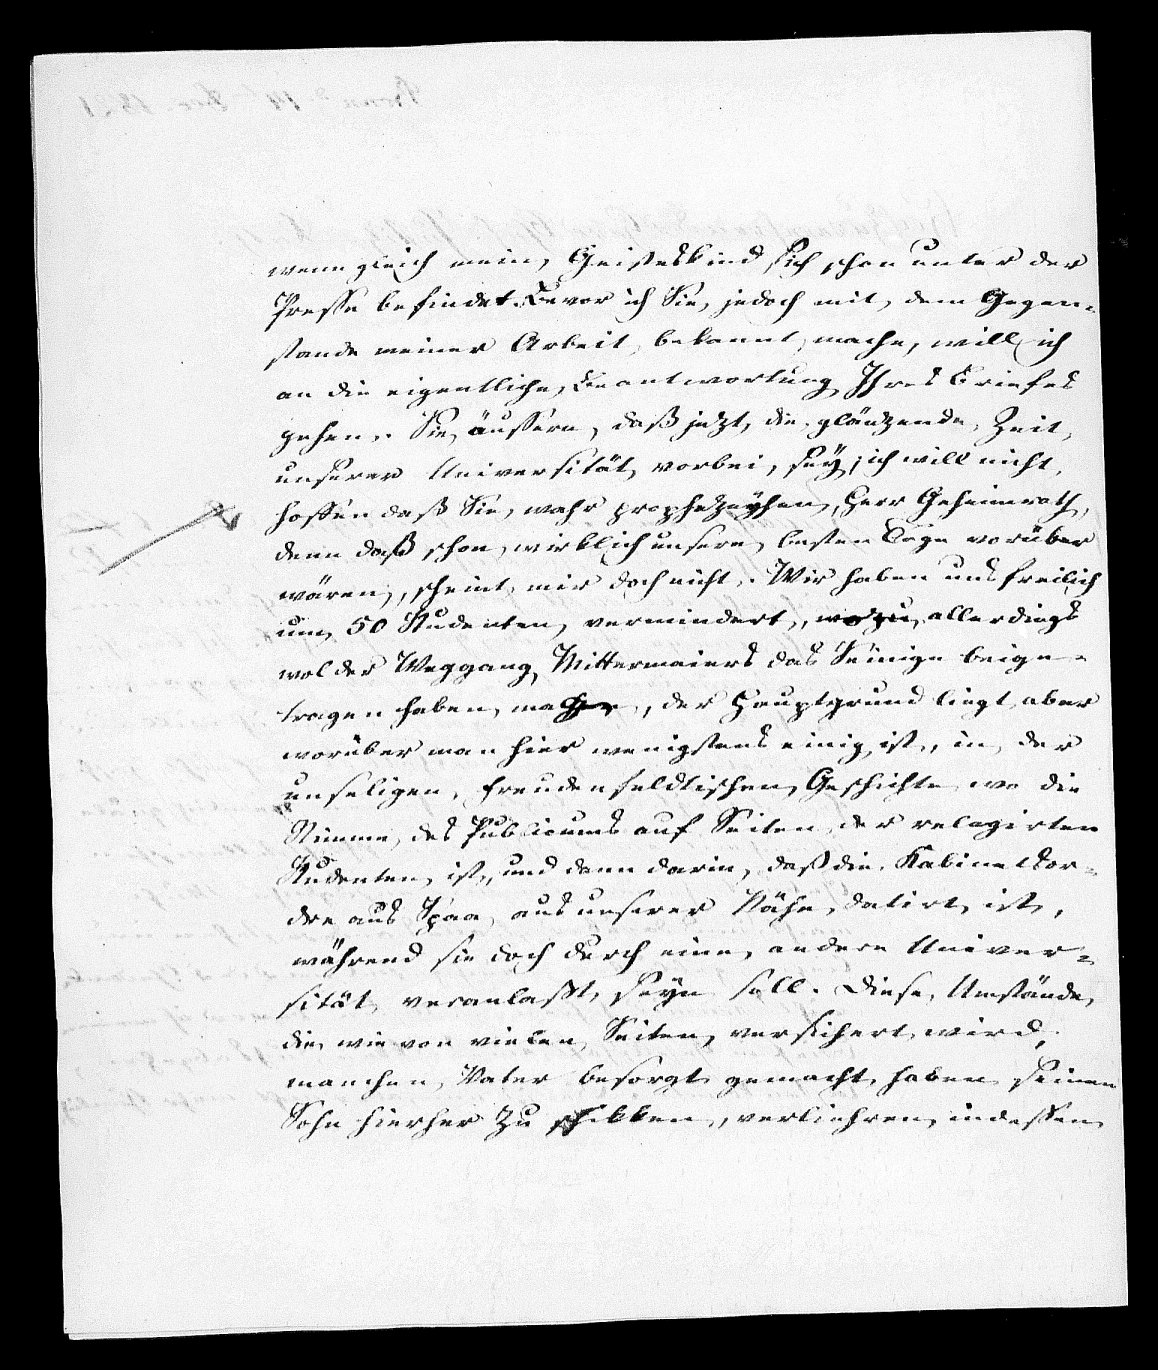 wenn gleich mein Geisteskind sich schon unter der
Presse befindet. Bevor ich Sie jedoch mit dem Gegen-
stande meiner Arbeit bekannt mache, will ich
an die eigentliche Beantwortung Ihres Briefes
gehen. Sie äussern, daß jezt die glänzende Zeit
unserer Universität vorbei sey, ich will nicht
hoffen daß Sie wahr prophezeyhen, Herr Geheimrath,
denn daß schon wirklich unsere besten Tage vorüber
wären, scheint mir doch nicht. Wir haben uns freilich
um 50 Studenten vermindert, wozu allerdings
wol der Weggang Mittermaiers das Seinige beige-
tragen haben mag, der Hauptgrund liegt aber
worüber man hier wenigstens einig ist, in der
unseligen Freudenfeldtischen Geschichte wo die
Stimme des Publicums auf Seiten der relegirten
Studenten ist, und dann darin, daß die Kabinetsor-
dre aus Spaa, aus unserer Nähe, datirt ist,
während sie doch durch eine andere Univer-
sität veranlaßt seyn soll. Diese Umstände,
die wie von vielen Seiten versichert wird,
manchen Vater besorgt gemacht haben seinen
Sohn hierher zu schikken, verliehren indessen